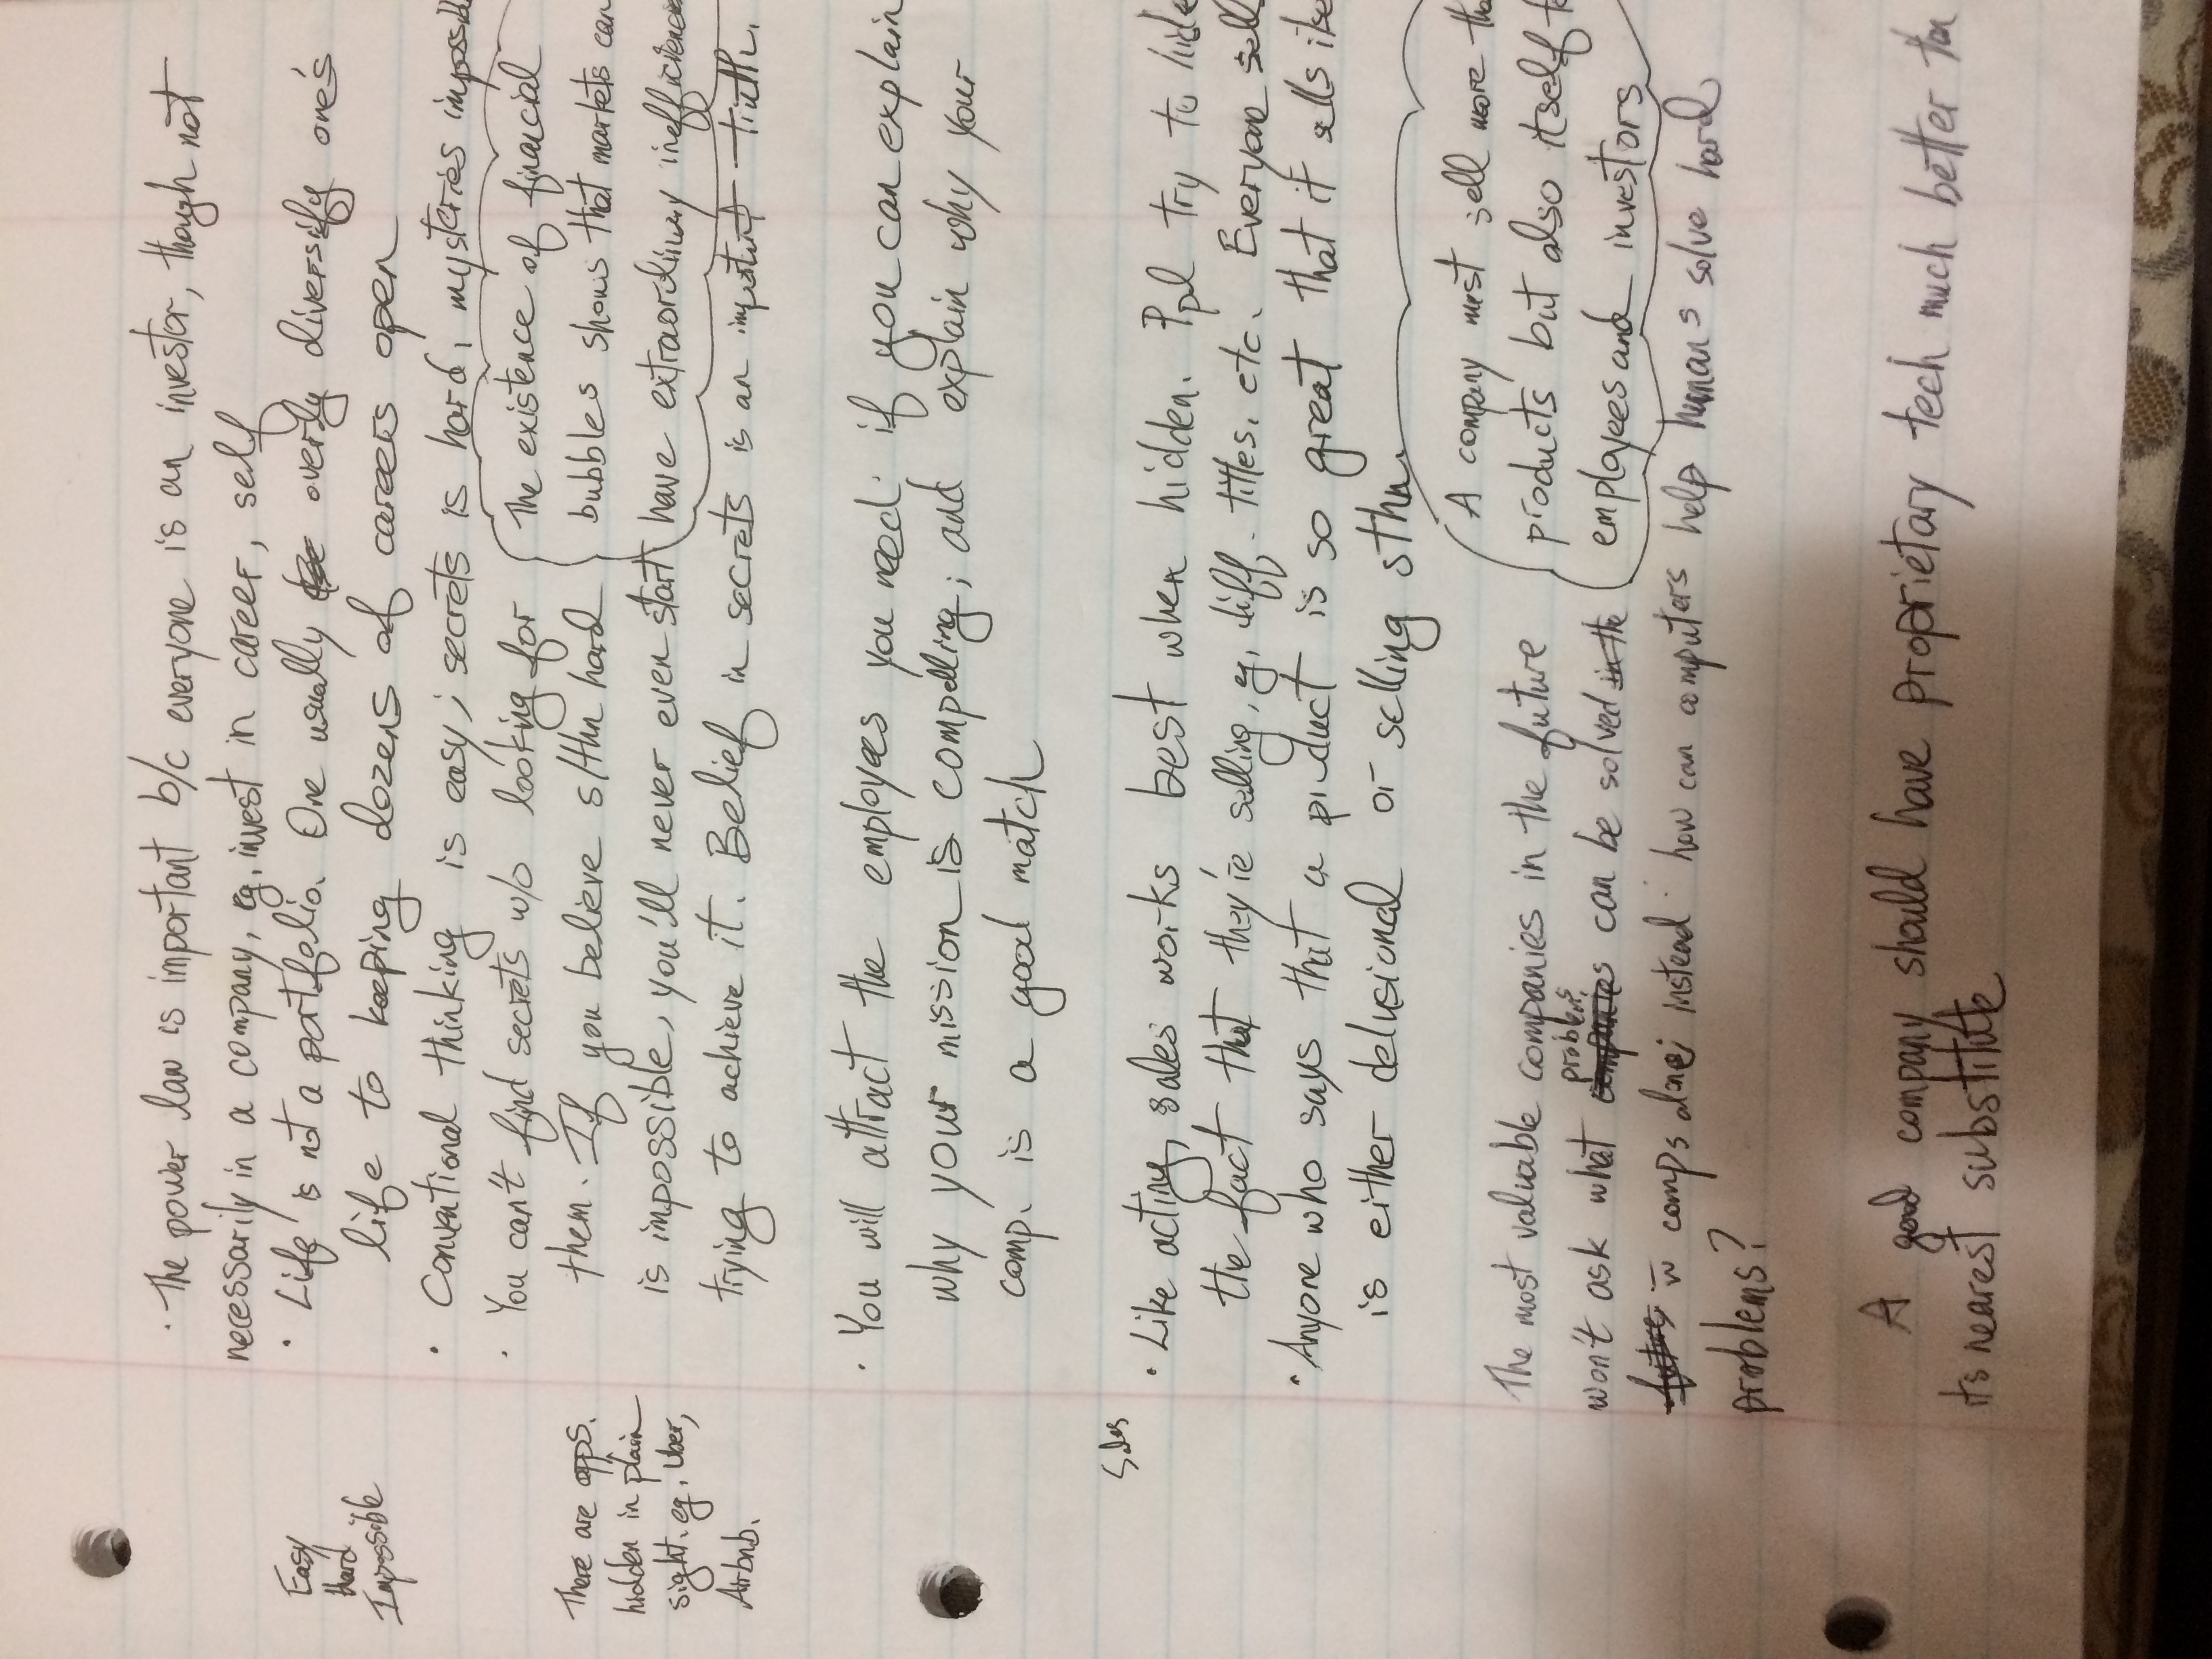 · The power law is important b/c everyone is an investor, though not
necessarily in a company, eg, invest in career, self
Easy
Hard
Impossible
· Life is not a portfolio. One usually overly diversify one's
life to keeping dozens of careers open
· Conventional thinking is easy; secrets is hard, mysteries impossibl
· You can't find secrets w/o looking for
them. If you believe s/thn hard
is impossible, you'll never even start
trying to achieve it. Belief in secrets is an important truth.
The existence of financial
bubbles shows that markets can
have extraordinary inefficiencies
There are opps.
hidden in plain
sight. eg, Uber,
Airbnb.
· You will attract the employees you need if you can explain
why your mission is compelling; and explain why your
comp. is a good match
Sales
· Like acting, sales works best when hidden. Ppl try to hide
the fact that they're selling, eg, diff. titles, etc. Everyone sell
· Anyone who says that a product is so great that it sells itse
is either delusional or selling sthn.
A company must sell more tha
products but also itself t
employees and investors
The most valuable companies in the future
won't ask what problems companies can be solved in the
future w comps alone; instead how can computers help humans solve hard
problems?
A good company should have proprietary tech much better than
its nearest substitute